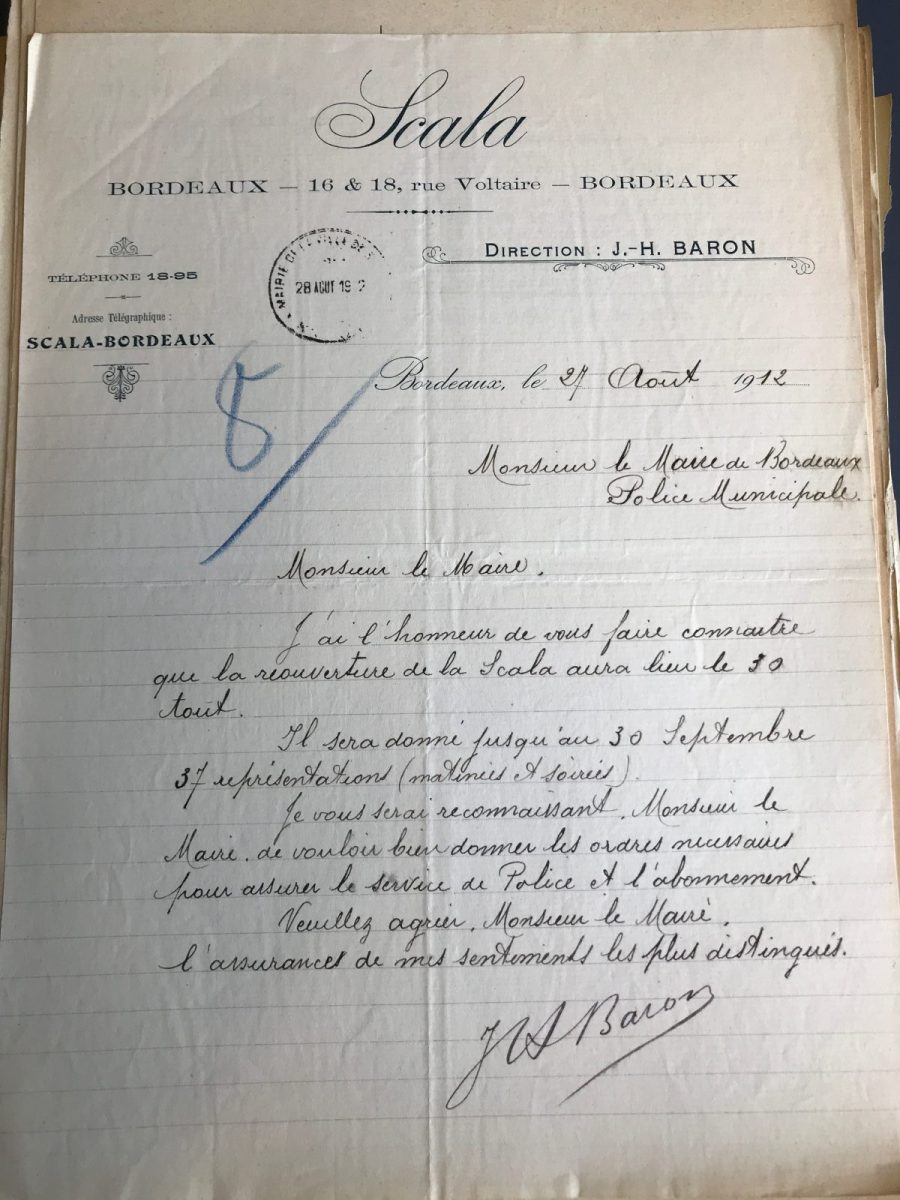 Scala
BORDEAUX — 16 & 18, rue Voltaire — BORDEAUX
TÉLÉPHONE 18-95
Adresse Télégraphique :
SCALA-BORDEAUX
MAIRIE DE LA VILLE DE
28 AOUT 19 2
DIRECTION : J.-H. BARON
8
Bordeaux, le 27 Août 1912
Monsieur le Maire de Bordeaux
Police Municipale.
Monsieur le Maire.
J'ai l'honneur de vous faire connaitre
que la réouverture de la Scala aura lieu le 30
août.
Il sera donné jusqu'au 30 Septembre
37 représentations (matinées et soirées).
Je vous serai reconnaissant, Monsieur le
Maire, de vouloir bien donner les ordres necessaires
pour assurer le service de Police et l'abonnement.
Veuillez agréer, Monsieur le Maire,
l'assurances de mes sentiments les plus distingués.
JH Baron